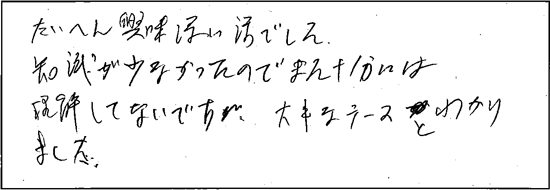 たいへん興味深い話でした.
知識が少なかったのでまだ十分には
理解してないですが、大事なテーマとわかり
ました.